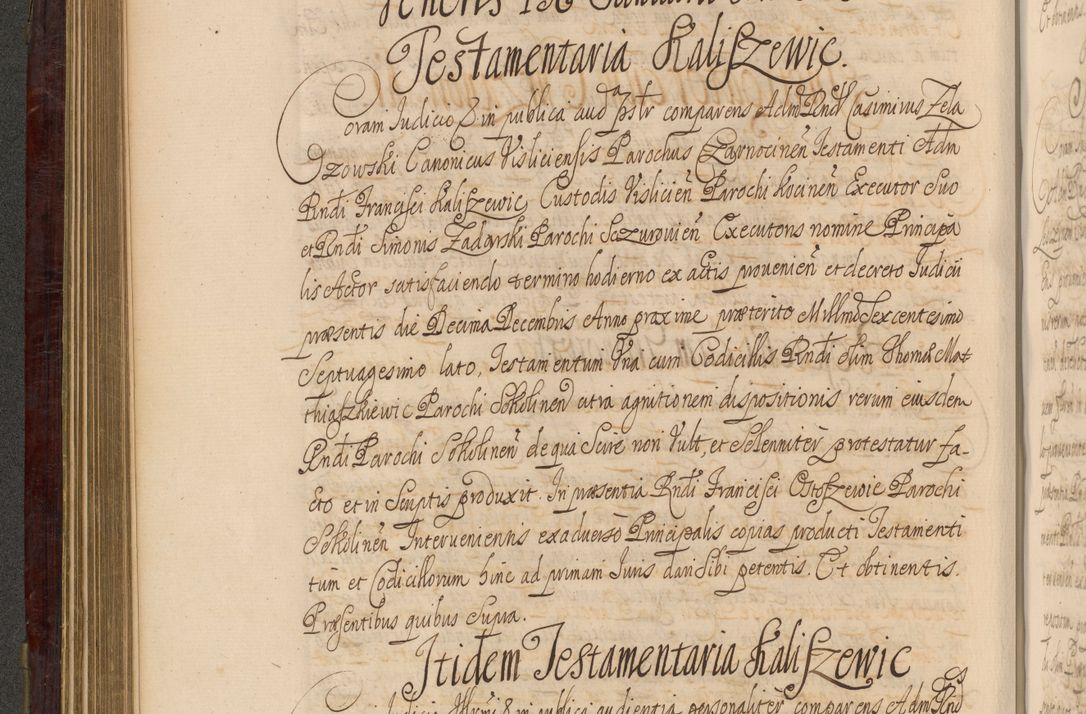 Testamentaria Kaliszewic.
Coram Judicio & in publica aud pstr comparens Adm Rndꝰ Casimirus Zela
Ozowski Canonicus Visliciensis Parochus Czarnocineñ Testamenti Adm
Rndi Francisci Kaliszewic Custodis Vislicieñ Parochi Kocineñ Executor Suo
et Rndi Simonis Zadorski Parochi Sczurovieñ Executoris nomine Principa
lis Actor satisfaciendo termino hodierno ex actis provenieñ et decreto Judicii
præsentis die Decima Decembris Anno proxime præterito Millmo Sexcentesimo
Septuagesimo lato, Testamentum Vna cum Codicillis Rndi olim Thomæ Mat
thiaszkiewic Parochi Sokolineñ citra agnitionem dispositionis rerum eiusdem
Rndi Parochi Sokolineñ de qua Scire non Vult, et Solenniter protestatur fa-
cto et in Scriptis produxit. In præsentia Rndi Francisci Ostoszewic Parochi
Sokolineñ Intervenientis ex adverso Principalis copias producti Testamenti
tum et Codicillorum hinc ad primam Juris dari Sibi petentis. Et obtinentis.
Præsentibus quibus Supra.
Itidem Testamentaria Kaliszewic
Judicio & in publica audientia personaliter comparens Adm Rnd